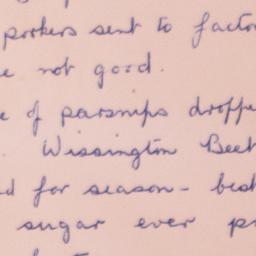 porkers sent to facto
e not good.
e of parsnips droppe
. Wissington Beet
d for season - best
sugar ever p